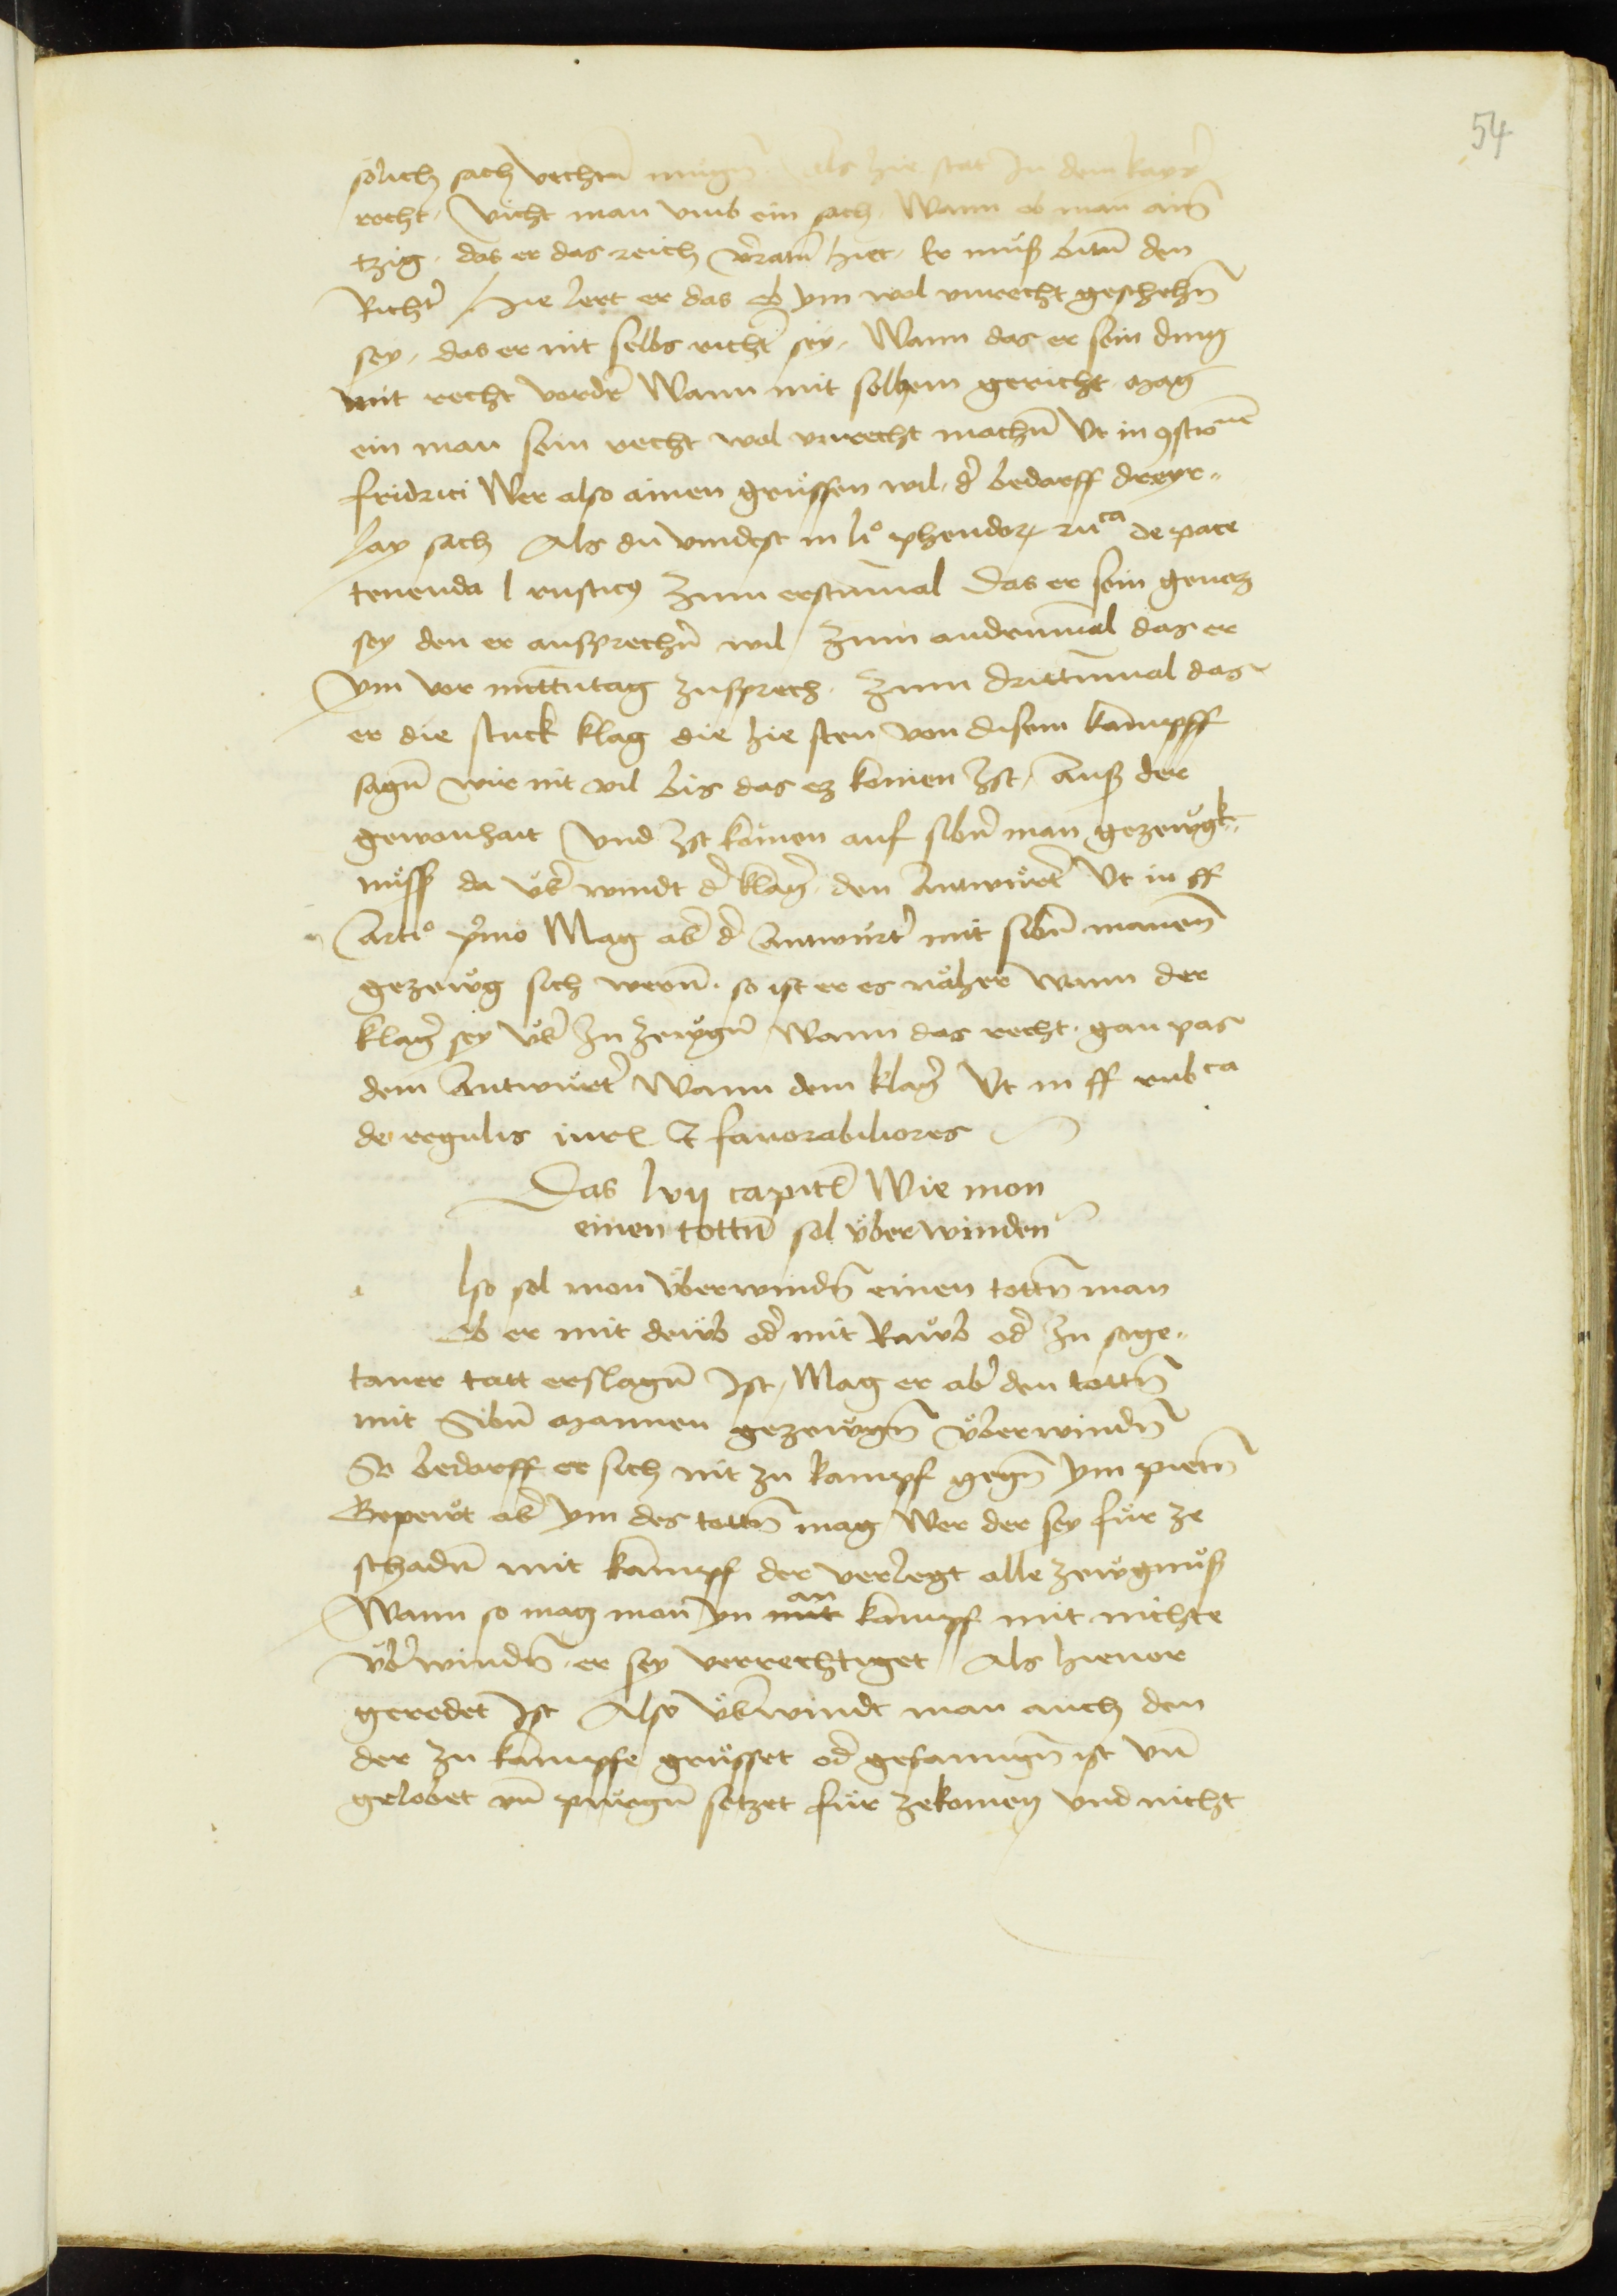 54
sölich sach vechtn̄ mügn̄ Als hie stat In dem kayr̄
recht / Vicht man vmb ein sach / Wann ob man ainē
tzig / das er das reich v̄ratn̄ hiet / Er muͦß bitn̄ den
Richt̄ / Hie lert er das ob ym wol vnrecht geschehn̄
sey / das er nit selbs richt̄ sey / Wann das er sein ding
mit recht vordr̄ Wann mit selbem gericht mag
ein man sein recht wol vnrecht machn̄ Vt in ꝯstionē
fridrici Wer also ainen gruͤssen wil / d̄ bedarff dreyr⸗
lay sach Als du vindest in liº phendorꝝ ruca de pace
tenenda l rusticꝰ Zum erstn̄mal Das er sein genoz
sey den er ansprechn̄ wil / Zum andernmal das er
ym vor mittn̄tag zusprech / Zum drittn̄mal das
er die stuck klag die hie sten von disem kampff
sagn̄ wir nit vil bis das ez komen Ist / Auß der
gewonhait Vnd Ist komen auf sibn̄ man gezewgk⸗
nuͤsß da vb̄ windt d̄ klaḡ den Antwuͤrt̄ Vt in ff
Artiº p̄mo Mag ab̄ d̄ Antwuͤrt̄ mit sibn̄ manenn
gezewg sich wern̄ / so ist er es naͤher wann der
klaḡ sey vb̄ In zewgn̄ Wann das recht gan pas
dem Antwuͤrt̄ Wann dem klaḡ Vt in ff rubca
de regulis iurꝭ l fauorabiliores
Das lvij capitl̄ Wie mon
einen tottn̄ sol vberwinden
a lso sol mon vberwindn̄ einen tottn̄ man
Ob er mit dewb od̄ mit Rawb od̄ In soge⸗
taner tatt erslagn̄ Ist / Mag er ab̄ den tottn̄
mit Sibn̄ mannen gezewgn̄ vberwindn̄
So bedarff er sich nit zu kampf gegn̄ ym pietn̄
Bepewt ab̄ ym des tottn̄ mag Wer der sey fuͤr ze
schadn̄ mit kampf der verlegt alle zewgnuͤß
Wann so mag man yn mit an kampf mit nichte
vb̄windn̄ / er sey verrechtiget / Als hieuor
geredet Ist Also vb̄windt man auch den
der zu kampffe gruͤsset od̄ gefanngn̄ ist vn̄
gelobet vn̄ puͤrgn̄ setzet fuͤr zekomen vnd nicht